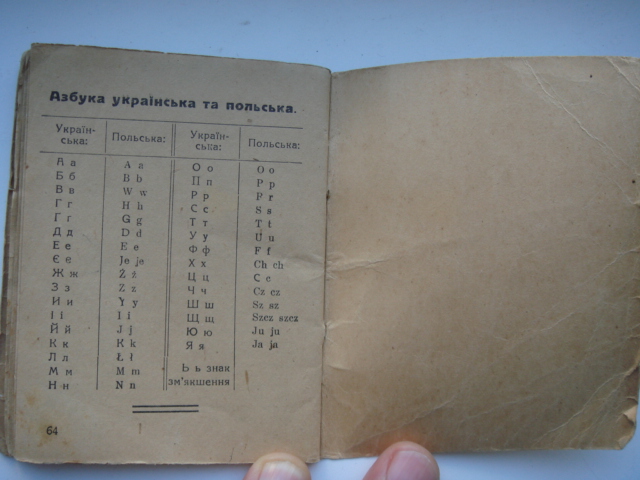 Азбука українська та польська.
Україн-ська: Польська: Україн-ська: Польська:
А а A a О о O o
Б б B b П п P p
В в W w Р р P r
Г г H h С с S s
Ґ ґ G g Т т T t
Д д D d У у U u
Е е E e Ф ф F f
Є є Je je Х х Ch ch
Ж ж Ż ż Ц ц C c
З з Z z Ч ч Cz cz
И и Y y Ш ш Sz sz
І і I i Щ щ Szcz szcz
Й й J j Ю ю Ju ju
К к K k Я я Ja ja
Л л Ł ł
М м M m Ь ь знак
Н н N n зм'якшення
64